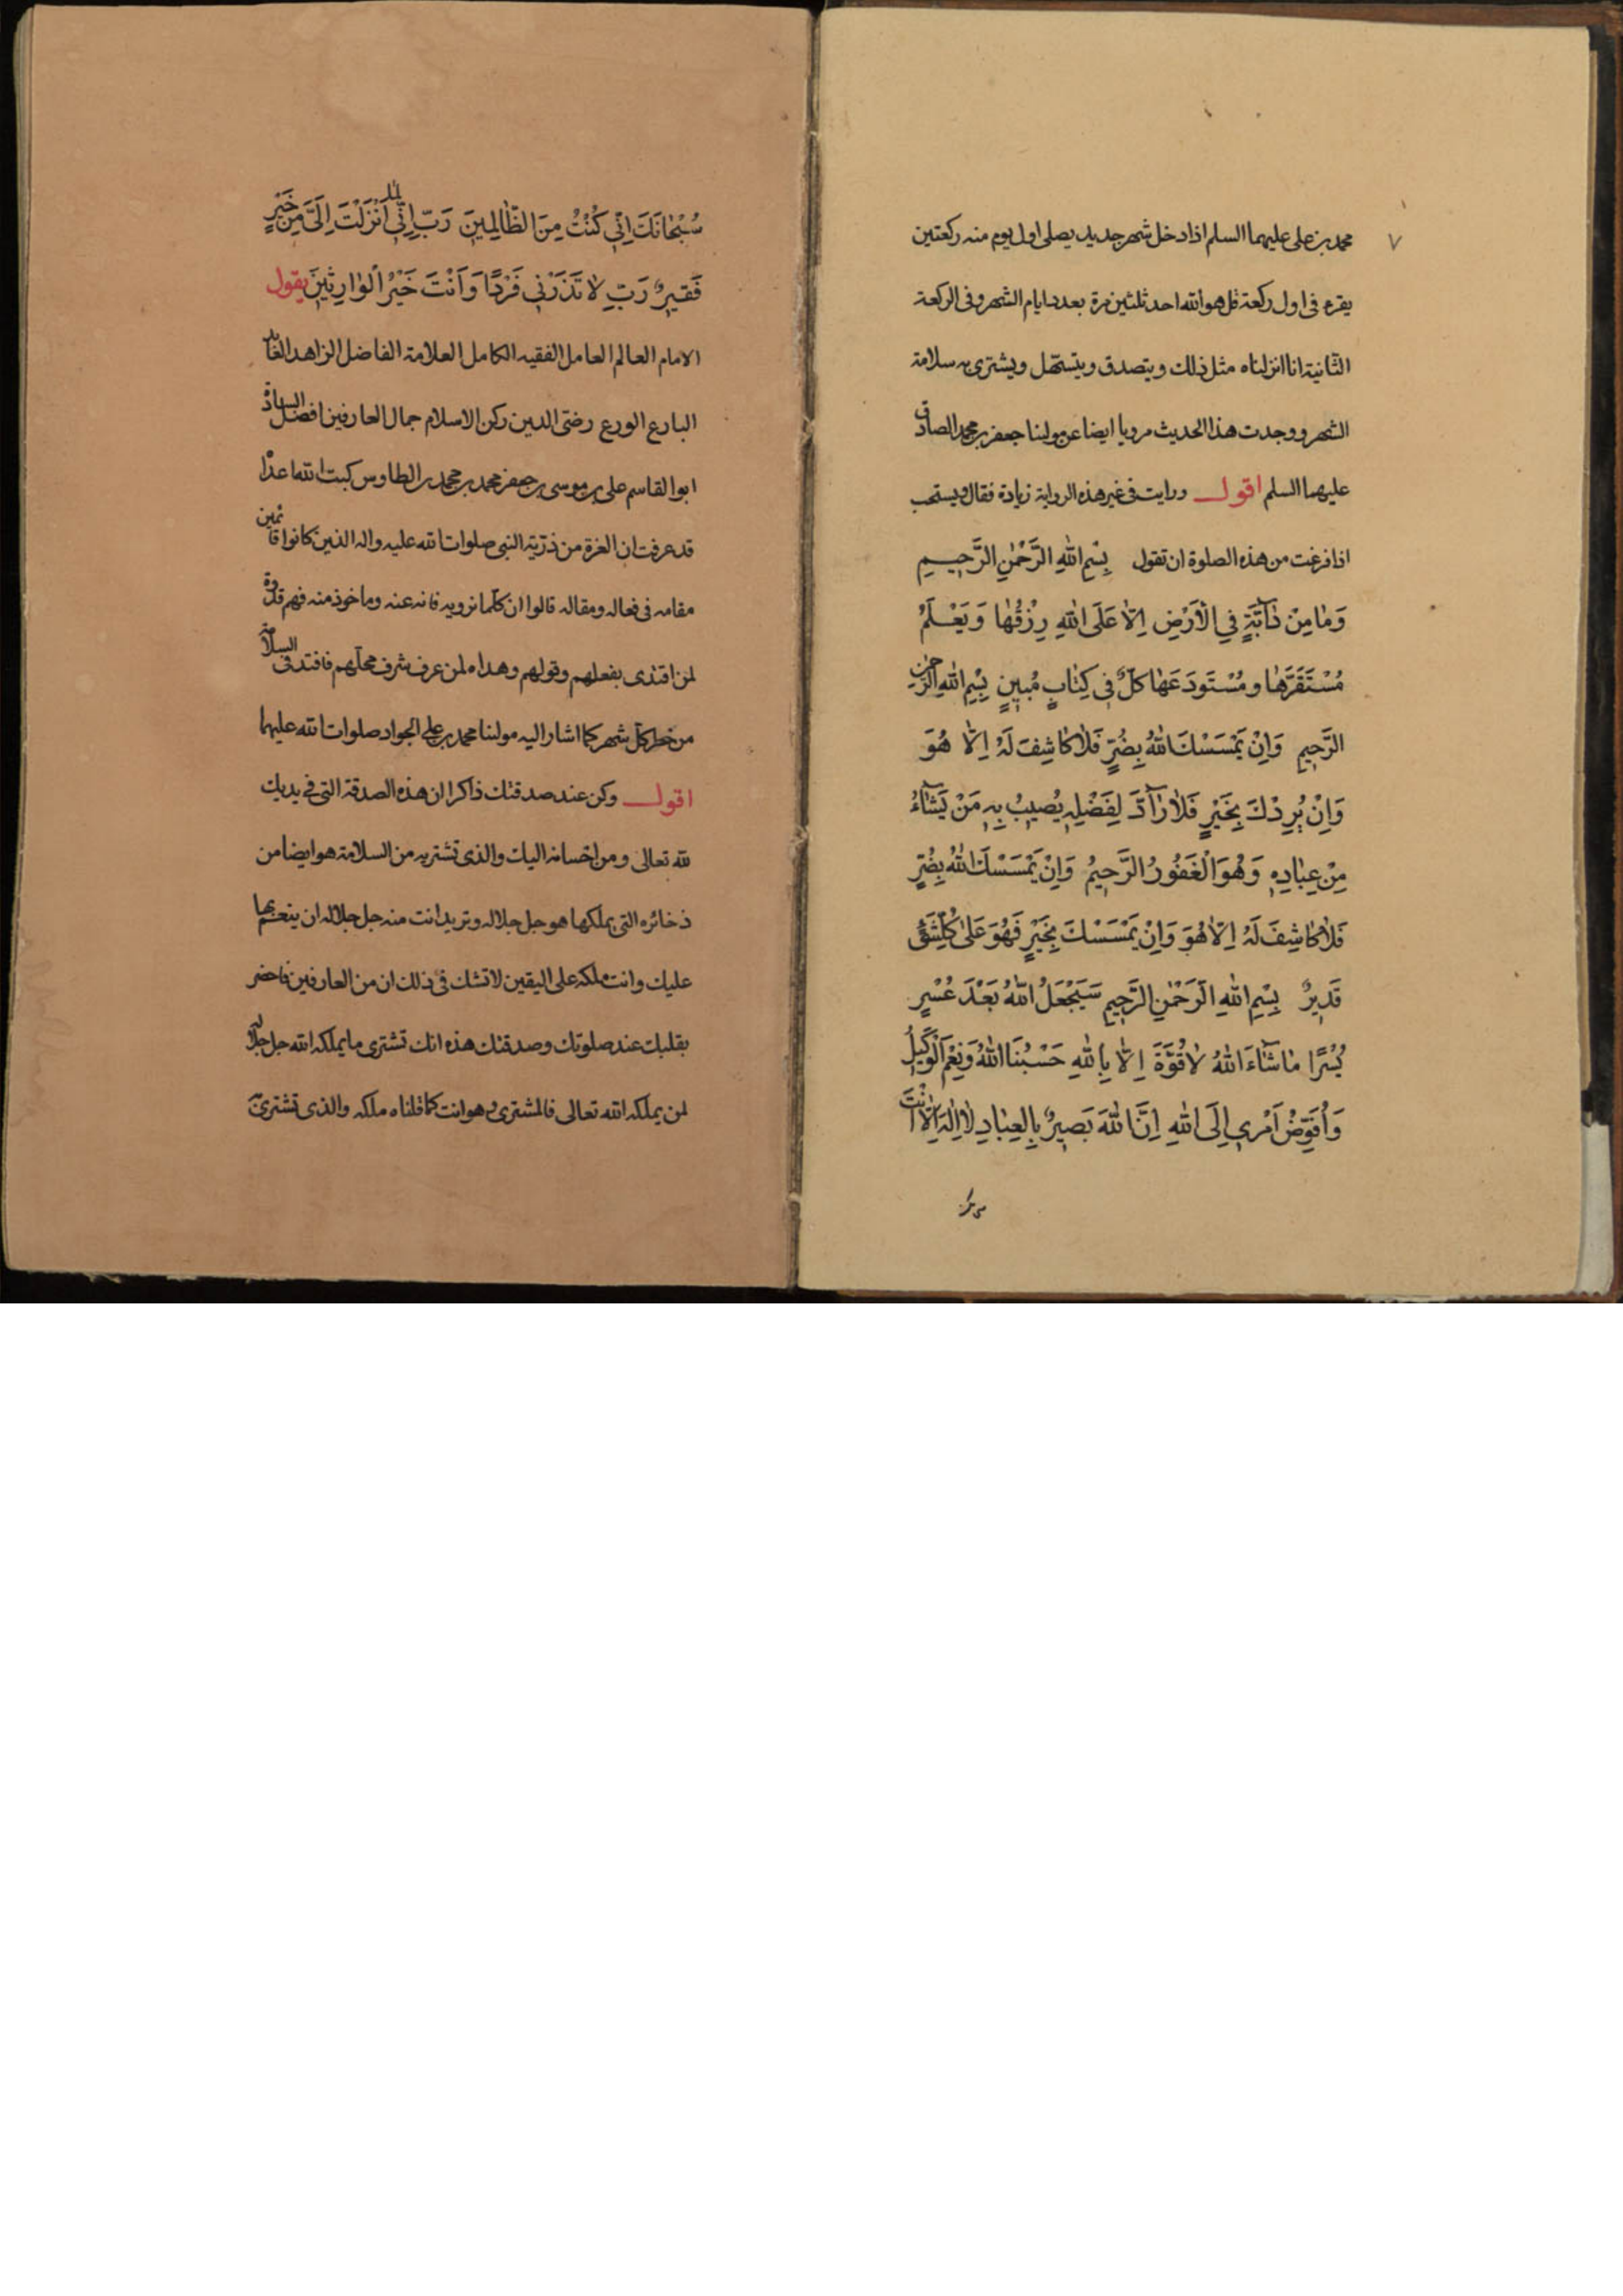 ٧
محمد بن علی علیهما السلم اذا دخل شهر جدید یصلی اول یوم منه رکعتین
یقرء فی اول رکعة قل هو الله احد ثلثین مرة بعدد ایام الشهر وفی الرکعة
الثانیة انا انزلناه مثل ذلک ویتصدق بما یتسهل ویشتری به سلامة
الشهر ووجدت هذا الحدیث مرویا ایضا عن مولینا جعفر بن محمد الصادق
علیهما السلم اقول ورایت فی غیر هذه الروایة زیادة فقال ویستحب
اذا فرغت من هذه الصلوة ان تقول بِسْمِ اللهِ الرَّحْمٰنِ الرَّحِیمِ
وَمٰا مِنْ دٰآبَّةٍ فِی الْاَرْضِ اِلّٰا عَلَی اللهِ رِزْقُهٰا وَیَعْلَمُ
مُسْتَقَرَّهٰا ومُسْتَودَعَهٰا کلٌّ فِی کِتٰابٍ مُبِینٍ بِسْمِ اللهِ الرَّحْمٰنِ
الرَّحِیمِ وَاِنْ یَمْسَسْكَ اللهُ بِضُرٍّ فَلٰا کٰاشِفَ لَهُ اِلّٰا هُوَ
وَاِنْ یُرِدْكَ بِخَیْرٍ فَلٰا رٰآدَّ لِفَضْلِهِ یُصِیبُ بِهِ مَنْ یَشٰآءُ
مِنْ عِبٰادِهِ وَهُوَ الْغَفُورُ الرَّحِیمُ وَاِنْ یَمْسَسْكَ اللهُ بِضُرٍّ
فَلٰا کٰاشِفَ لَهُ اِلّٰا هُوَ وَاِنْ یَمْسَسْكَ بِخَیْرٍ فَهُوَ عَلٰی کُلِّ شَیْءٍ
قَدِیرٌ بِسْمِ اللهِ الرَّحْمٰنِ الرَّحِیمِ سَیَجْعَلُ اللهُ بَعْدَ عُسْرٍ
یُسْرًا مٰا شٰآءَ اللهُ لٰا قُوَّةَ اِلّٰا بِاللهِ حَسْبُنَا اللهُ وَنِعْمَ الْوَکِیلُ
وَاُفَوِّضُ اَمْرِی اِلَی اللهِ اِنَّ اللهَ بَصِیرٌ بِالعِبٰادِ لٰا اِلٰهَ اِلّٰا اَنْتَ
سُبْحٰانَكَ اِنِّی کُنْتُ مِنَ الظّٰالِمِینَ رَبِّ اِنِّی لِمٰا اَنْزَلْتَ اِلَیَّ مِنْ خَیْرٍ
فَقِیرٌ رَبِّ لٰا تَذَرْنِی فَرْدًا وَاَنْتَ خَیْرُ الْوٰارِثِینَ یقول
الامام العالم العامل الفقیه الکامل العلامة الفاضل الزاهد العابد
البارع الورع رضی الدین رکن الاسلام جمال العارفین افضل السادة
ابو القاسم علی بن موسی بن جعفر محمد بن محمد بن الطاوس کبت الله اعداه
قد عرفت ان العترة من ذریة النبی صلوات الله علیه واله الذین کانوا قائمین
مقامه فی فعاله ومقاله قالوا ان کلما نرویه فانه عنه وماخوذ منه فهم قدوة
لمن اقتدی بفعلهم وقولهم وهداه لمن عرف شرف محلهم فاقتد فی السلامة
من خطر کل شهر کما اشار الیه مولینا محمد بن علی الجواد صلوات الله علیهما
اقول وکن عند صدقتک ذاکرا ان هذه الصدقة التی فی یدیک
لله تعالی ومن احسانه الیک والذی تشتریه من السلامة هو ایضا من
ذخائره التی یملکها هو جل جلاله وترید انت منه جل جلاله ان ینعم بها
علیک وانت ملکه علی الیقین لا تشک فی ذلک ان من العارفین فاحضر
بقلبک عند صلوتک وصدقتک هذه انک تشتری ما یملکه الله جل جلاله
لمن یملکه الله تعالی فالمشتری هو انت کما قلناه ملکه والذی تشتری